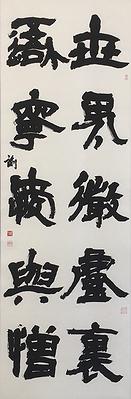 世界微塵裏
吾寧愛與憎